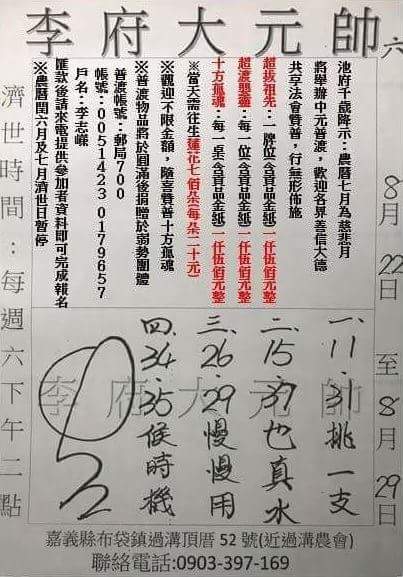 李府大元帥
六 8月22日至8月29日
池府千歲降示：農曆七月為慈悲月
將舉辦中元普渡，歡迎各界善信大德
共享法會贊普，行無形佈施
超拔祖先：一牌位(含貢品金紙)一仟伍佰元整
超渡嬰靈：每一位(含貢品金紙)一仟伍佰元整
十方孤魂：每一桌(含貢品金紙)一仟伍佰元整
※當天需往生蓮花七佰朵(每朵二十元)
※觀迎不限金額，隨喜贊普十方孤魂
※普渡物品將於圓滿後捐贈於弱勢團體
普渡帳號：郵局700
帳號：0051423 0179657
戶名：李志嶸
匯款後請來電提供參加者資料即可完成報名
※農曆閏六月及七月濟世日暫停
一、11.31挑一支
二、15.37也真水
三、26.29慢慢用
四、34.35候時機
李府大元帥
濟世時間：每週六下午二點
嘉義縣布袋鎮過溝頂厝52號(近過溝農會)
聯絡電話:0903-397-169